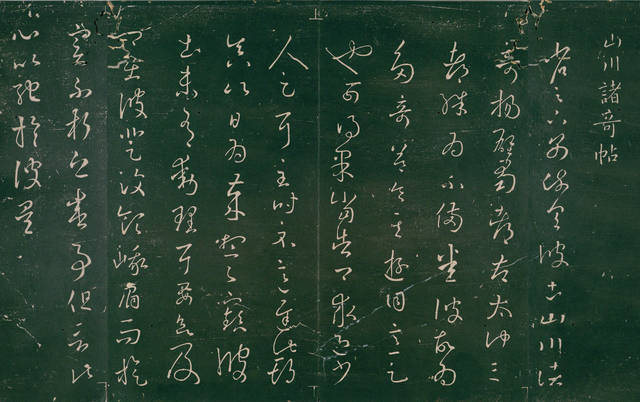 山川諸奇帖
省足下別疏具彼土山川諸
奇揚雄蜀都左太沖三
都殊為不備悉彼故為
多奇益令其遊目意足
也可得果當告卿求迎少
人足耳至時示意遲此期
真以日為歲想足下鎮彼
土未有動理耳要欲及
卿在彼登汶領峨眉而旋
實不朽之盛事但言此
心以馳於彼矣